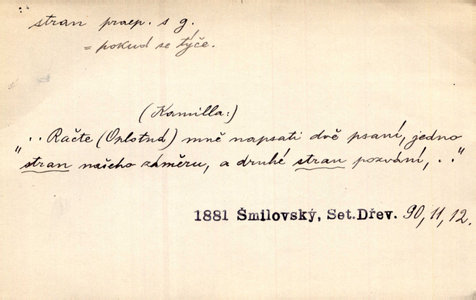 stran praep. s g.
= pokud se týče.
(Kamilla:)
"‥ Račte (Oplotná) mně napsati dvě psaní, jedno
stran našeho záměru, a druhé stran pozvání, ‥"
1881 Šmilovský, Set.Dřev. 90, 11, 12.